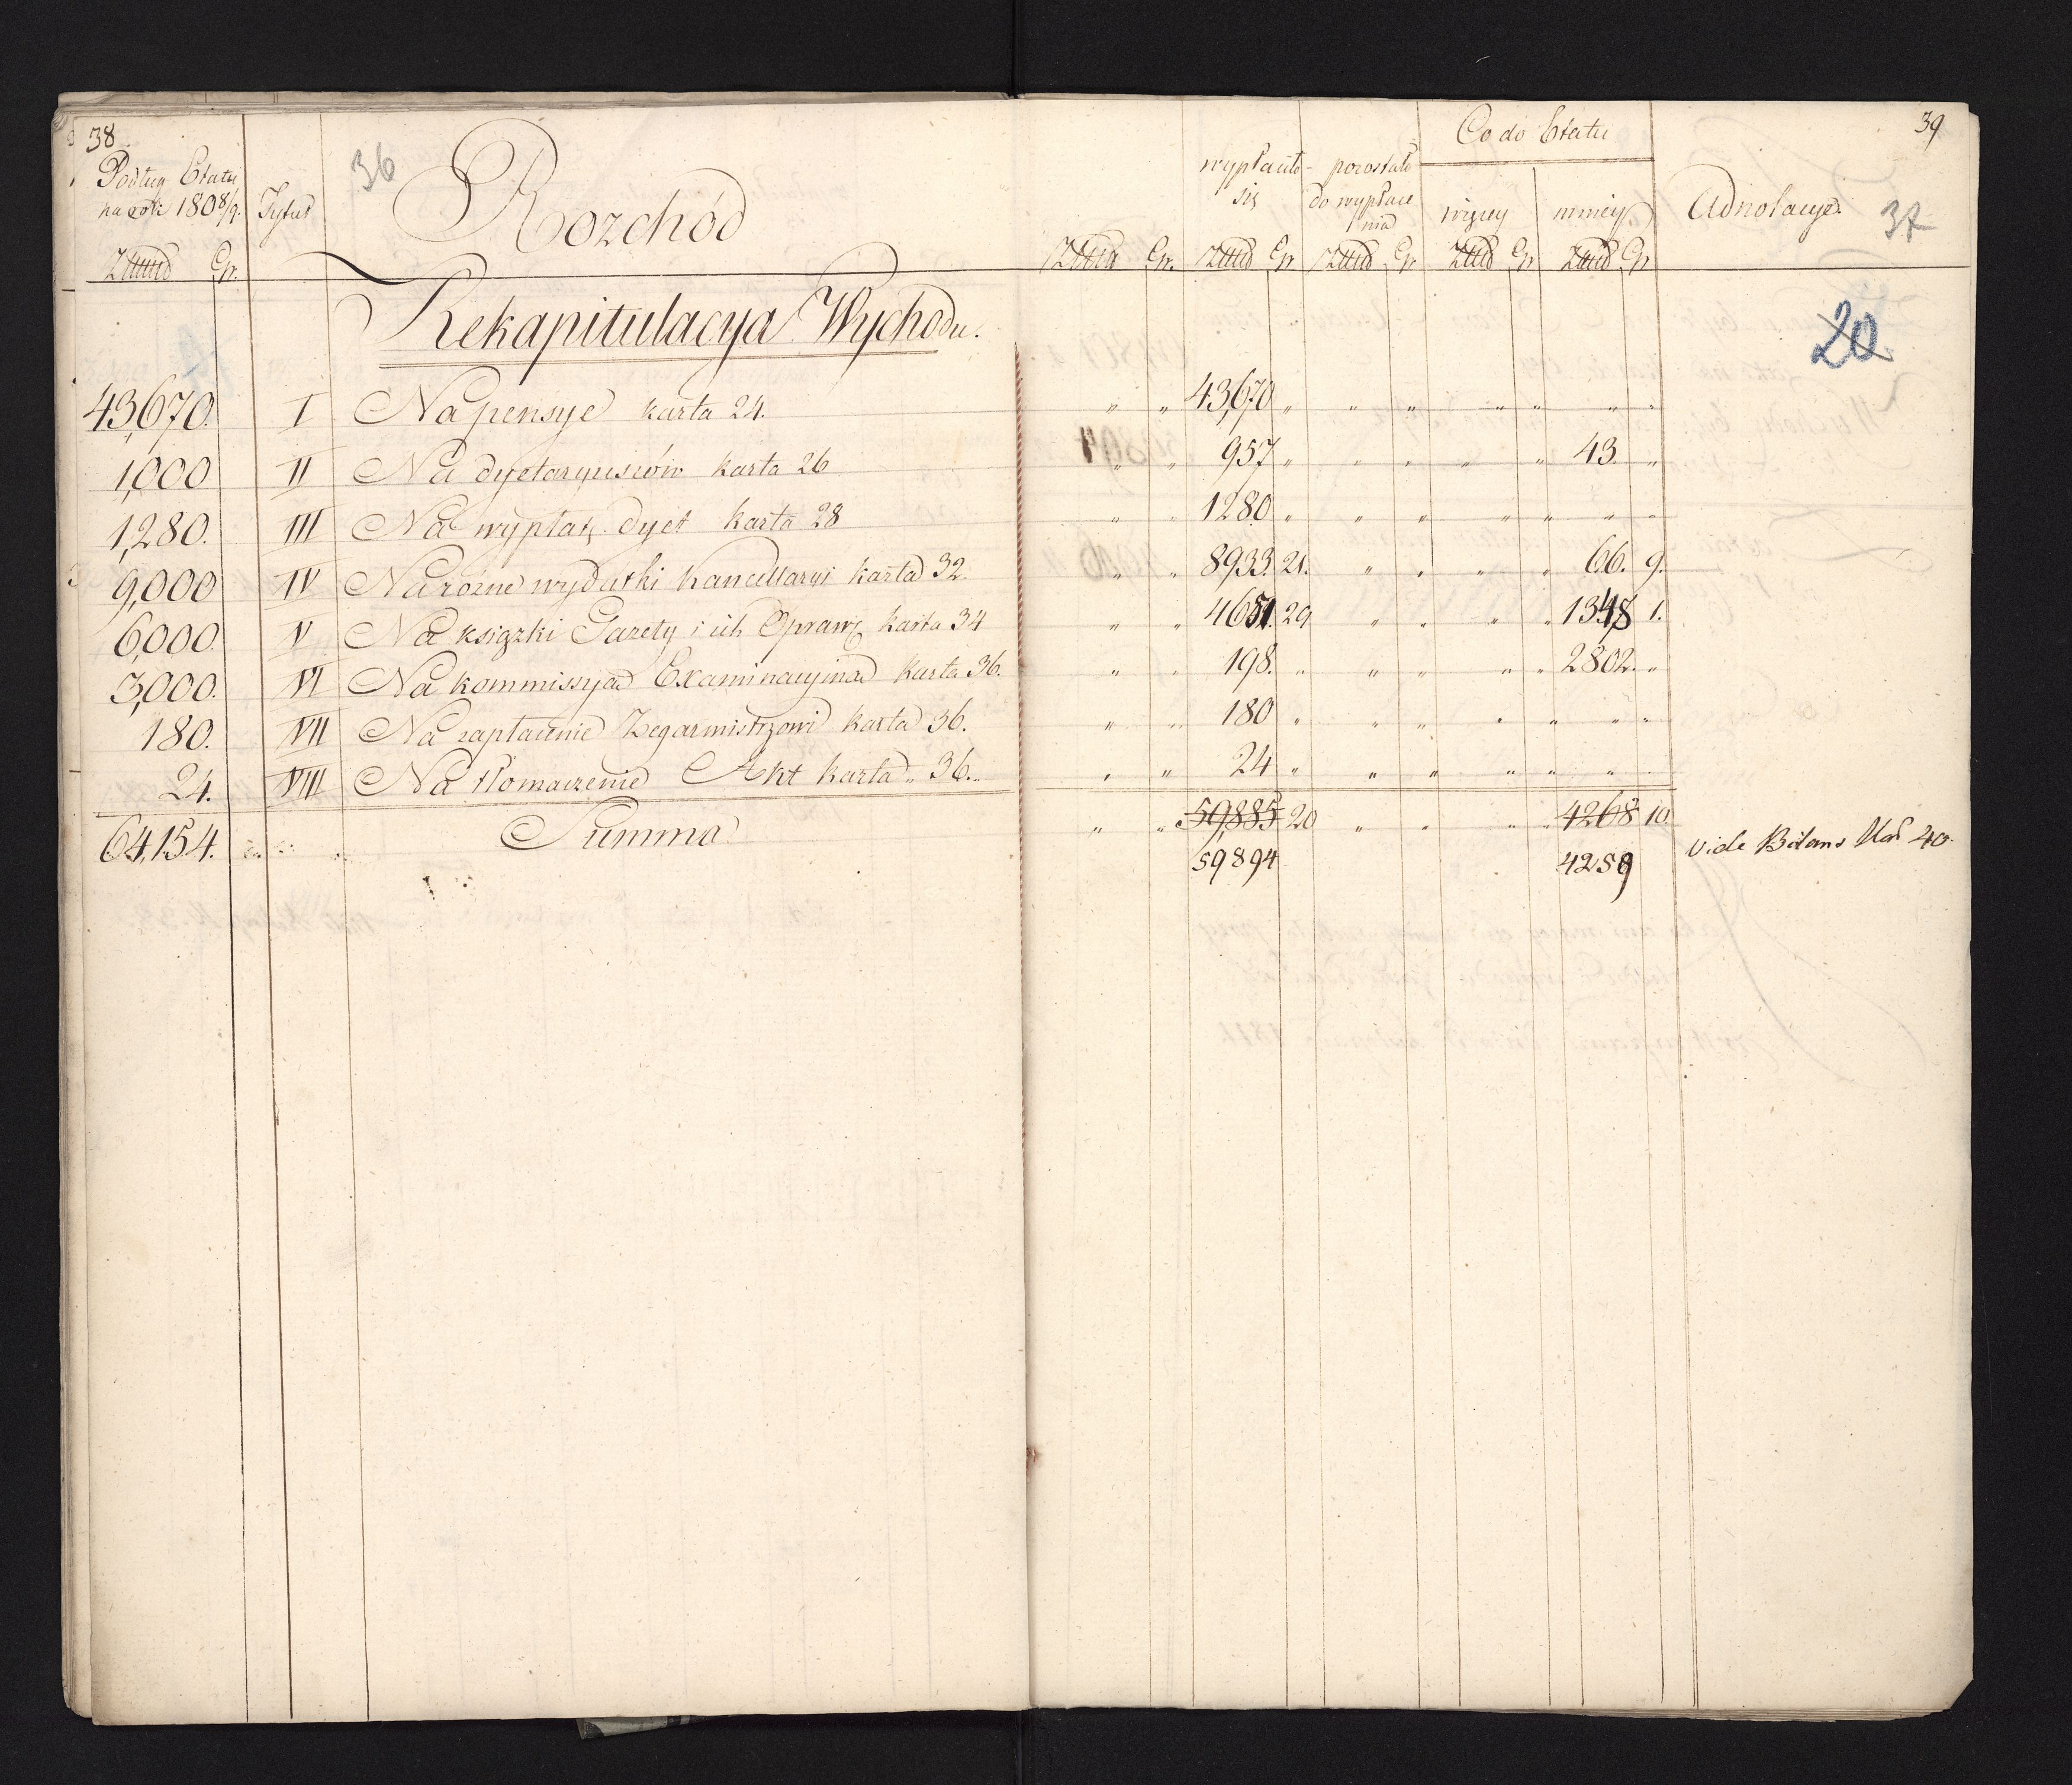 38
39
36
37
20
Podług Etatu
na rok 1808/9.
Gr.
Tytuł
Rozchód
wypłaciło
się
pozostało
do wypłace
nia
Co do Etatu
więcey
mniey
Adnotacye.
Gr. Gr Gr Gr Gr
Rekapitulacya Wychodu.
43,670. I Na pensye karta 24. " " 43,670 " " " " " " "
1,000 II Na dyetaryuszów karta 26 " " 957 " " " " " 43. "
1,280. III Na wypłatę dyet karta 28 " " 1280 " " " " " " "
9,000 IV Na różne wydatki Kancellaryi karta 32. " " 8933. 21. " " " " 66. 9.
6,000. V Na książki Gazety i ich Oprawę karta 34 " " 4651. 29 " " " " 1348 1.
3,000. VI Na kommissyą Examinacyiną karta 36. " " 198. " " " " " 2802. "
180. VII Na zapłacenie Zegarmistrzowi karta 36. " " 180 " " " " " " "
24. VIII Na tłomaczenie Akt karta " 36. " " 24 " " " " " " "
64,154. Summa " " 59,885 20 " " " " 4268 10
59894 4259 vide Bilans Kar 40.